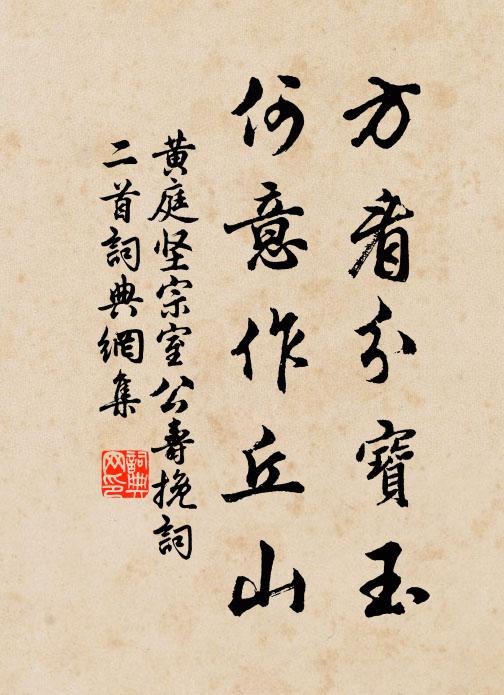 方看分寶玉
何意作丘山
黄庭坚宗室公壽挽詞
二首詞典網集
詞典
网印